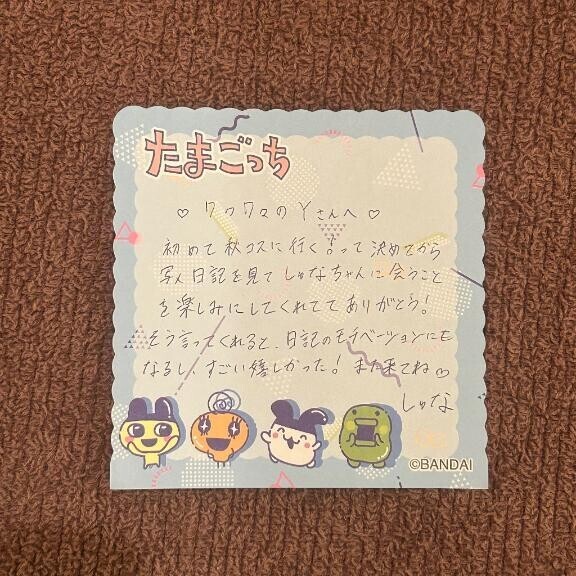 たまごっち
♡ ワクワクの Yさんへ ♡
初めて秋コスに行く!って決めてから
写メ日記を見てしゅなちゃんに会うこと
を楽しみにしてくれててありがとう!
そう言ってくれると、日記のモチベーションにも
なるし、すごい嬉しかった! また来てね♡
しゅな
©BANDAI